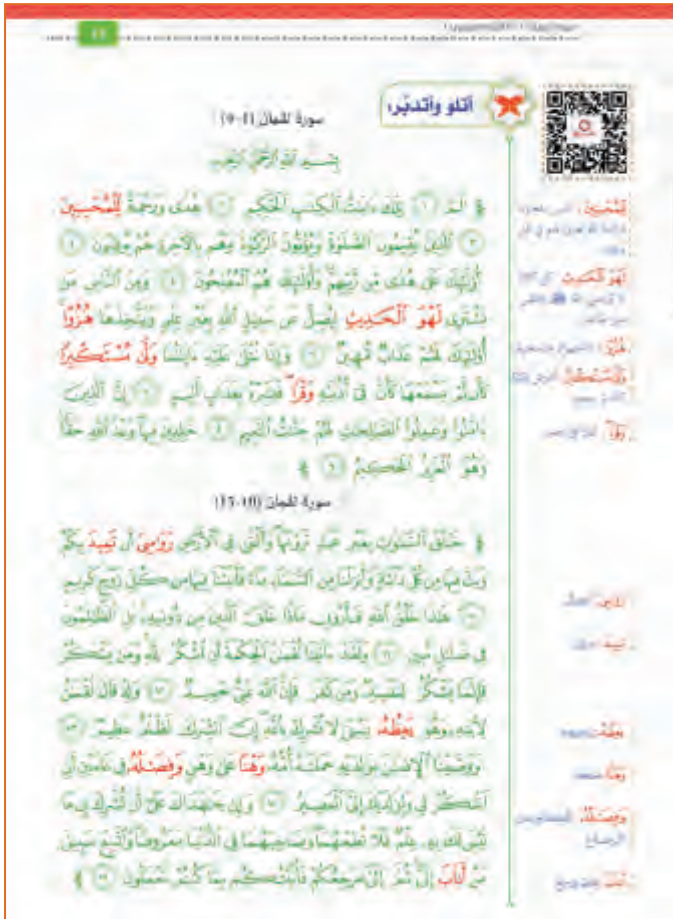 أتلو وأتدبّر:
سورة لقمان (1-9)
بِسْمِ اللَّهِ الرَّحْمَٰنِ الرَّحِيمِ
﴿ الٓمٓ ١ تِلْكَ ءَايَٰتُ ٱلْكِتَٰبِ ٱلْحَكِيمِ ٢ هُدًى وَرَحْمَةً لِّلْمُحْسِنِينَ
٣ ٱلَّذِينَ يُقِيمُونَ ٱلصَّلَوٰةَ وَيُؤْتُونَ ٱلزَّكَوٰةَ وَهُم بِٱلْءَاخِرَةِ هُمْ يُوقِنُونَ ٤
أُوْلَٰٓئِكَ عَلَىٰ هُدًى مِّن رَّبِّهِمْ وَأُوْلَٰٓئِكَ هُمُ ٱلْمُفْلِحُونَ ٥ وَمِنَ ٱلنَّاسِ مَن
يَشْتَرِي لَهْوَ ٱلْحَدِيثِ لِيُضِلَّ عَن سَبِيلِ ٱللَّهِ بِغَيْرِ عِلْمٍ وَيَتَّخِذَهَا هُزُوًا
أُوْلَٰٓئِكَ لَهُمْ عَذَابٌ مُّهِينٌ ٦ وَإِذَا تُتْلَىٰ عَلَيْهِ ءَايَٰتُنَا وَلَّىٰ مُسْتَكْبِرًا
كَأَن لَّمْ يَسْمَعْهَا كَأَنَّ فِىٓ أُذُنَيْهِ وَقْرًا فَبَشِّرْهُ بِعَذَابٍ أَلِيمٍ ٧ إِنَّ ٱلَّذِينَ
ءَامَنُوا۟ وَعَمِلُوا۟ ٱلصَّٰلِحَٰتِ لَهُمْ جَنَّٰتُ ٱلنَّعِيمِ ٨ خَٰلِدِينَ فِيهَا وَعْدَ ٱللَّهِ حَقًّا
وَهُوَ ٱلْعَزِيزُ ٱلْحَكِيمُ ٩ ﴾
سورة لقمان (10-15)
﴿ خَلَقَ ٱلسَّمَٰوَٰتِ بِغَيْرِ عَمَدٍ تَرَوْنَهَا وَأَلْقَىٰ فِى ٱلْأَرْضِ رَوَٰسِىَ أَن تَمِيدَ بِكُمْ
وَبَثَّ فِيهَا مِن كُلِّ دَآبَّةٍ وَأَنزَلْنَا مِنَ ٱلسَّمَآءِ مَآءً فَأَنۢبَتْنَا فِيهَا مِن كُلِّ زَوْجٍ كَرِيمٍ
١٠ هَٰذَا خَلْقُ ٱللَّهِ فَأَرُونِى مَاذَا خَلَقَ ٱلَّذِينَ مِن دُونِهِۦ بَلِ ٱلظَّٰلِمُونَ
فِى ضَلَٰلٍ مُّبِينٍ ١١ وَلَقَدْ ءَاتَيْنَا لُقْمَٰنَ ٱلْحِكْمَةَ أَنِ ٱشْكُرْ لِلَّهِ وَمَن يَشْكُرْ
فَإِنَّمَا يَشْكُرُ لِنَفْسِهِۦ وَمَن كَفَرَ فَإِنَّ ٱللَّهَ غَنِىٌّ حَمِيدٌ ١٢ وَإِذْ قَالَ لُقْمَٰنُ
لِٱبْنِهِۦ وَهُوَ يَعِظُهُۥ يَٰبُنَىَّ لَا تُشْرِكْ بِٱللَّهِ إِنَّ ٱلشِّرْكَ لَظُلْمٌ عَظِيمٌ ١٣
وَوَصَّيْنَا ٱلْإِنسَٰنَ بِوَٰلِدَيْهِ حَمَلَتْهُ أُمُّهُۥ وَهْنًا عَلَىٰ وَهْنٍ وَفِصَٰلُهُۥ فِى عَامَيْنِ أَنِ
ٱشْكُرْ لِى وَلِوَٰلِدَيْكَ إِلَىَّ ٱلْمَصِيرُ ١٤ وَإِن جَٰهَدَاكَ عَلَىٰٓ أَن تُشْرِكَ بِى مَا
لَيْسَ لَكَ بِهِۦ عِلْمٌ فَلَا تُطِعْهُمَا وَصَاحِبْهُمَا فِى ٱلدُّنْيَا مَعْرُوفًا وَٱتَّبِعْ سَبِيلَ
مَنْ أَنَابَ إِلَىَّ ثُمَّ إِلَىَّ مَرْجِعُكُمْ فَأُنَبِّئُكُم بِمَا كُنتُمْ تَعْمَلُونَ ١٥ ﴾
لِّلْمُحْسِنِينَ :
لَهْوَ ٱلْحَدِيثِ :
هُزُوًا :
وَقْرًا :
تَمِيدَ :
يَعِظُهُۥ :
وَهْنًا :
وَفِصَٰلُهُۥ :
الرضاع